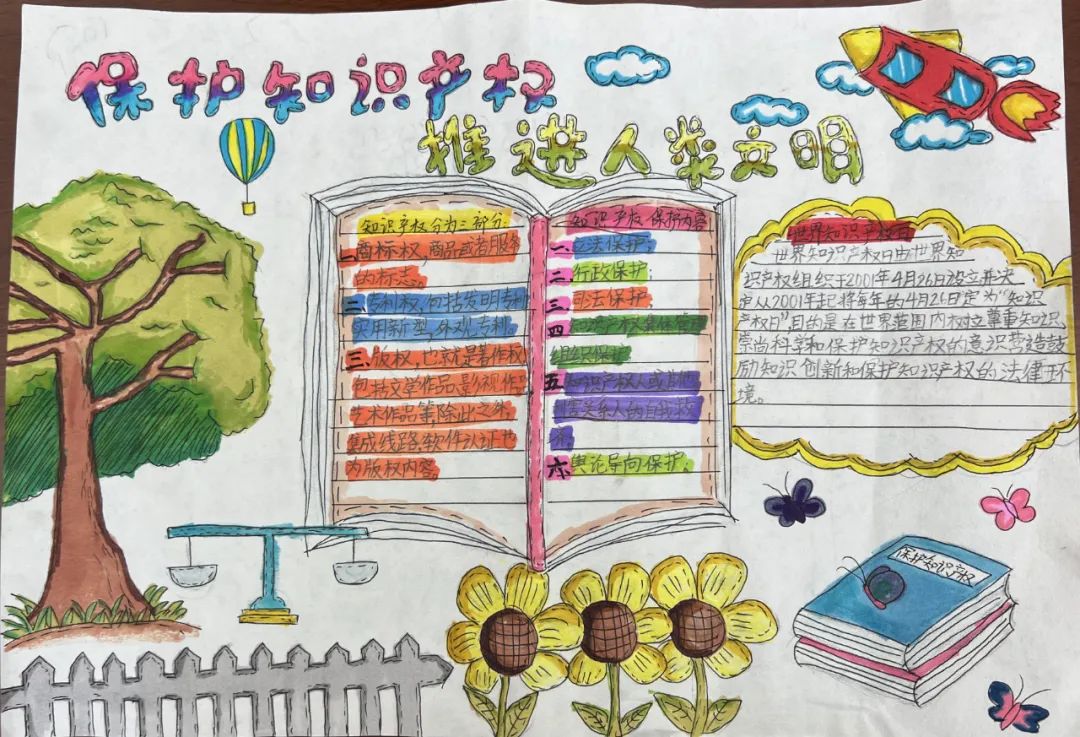 保护知识产权
推进人类文明
知识产权分为三部分
一.商标权,商品或者服务
的标志。
二.专利权,包括发明专利
实用新型,外观专利。
三.版权,也就是著作权
包括文学作品、影视作品
艺术作品等,除此之外,
集成线路、软件认证也
为版权内容。
知识产权保护内容
一.立法保护;
二.行政保护;
三.司法保护;
四.知识产权集体管理
组织保护
五.知识产权人或其他
利害关系人的自我救
济
六.舆论导向保护。
世界知识产权日
世界知识产权日由世界知
识产权组织于2001年4月26日设立并决
定从2001年起将每年的4月26日定为“知识
产权日”目的是在世界范围内树立尊重知识、
崇尚科学和保护知识产权的意识营造鼓
励知识创新和保护知识产权的法律环
境。
保护知识产权